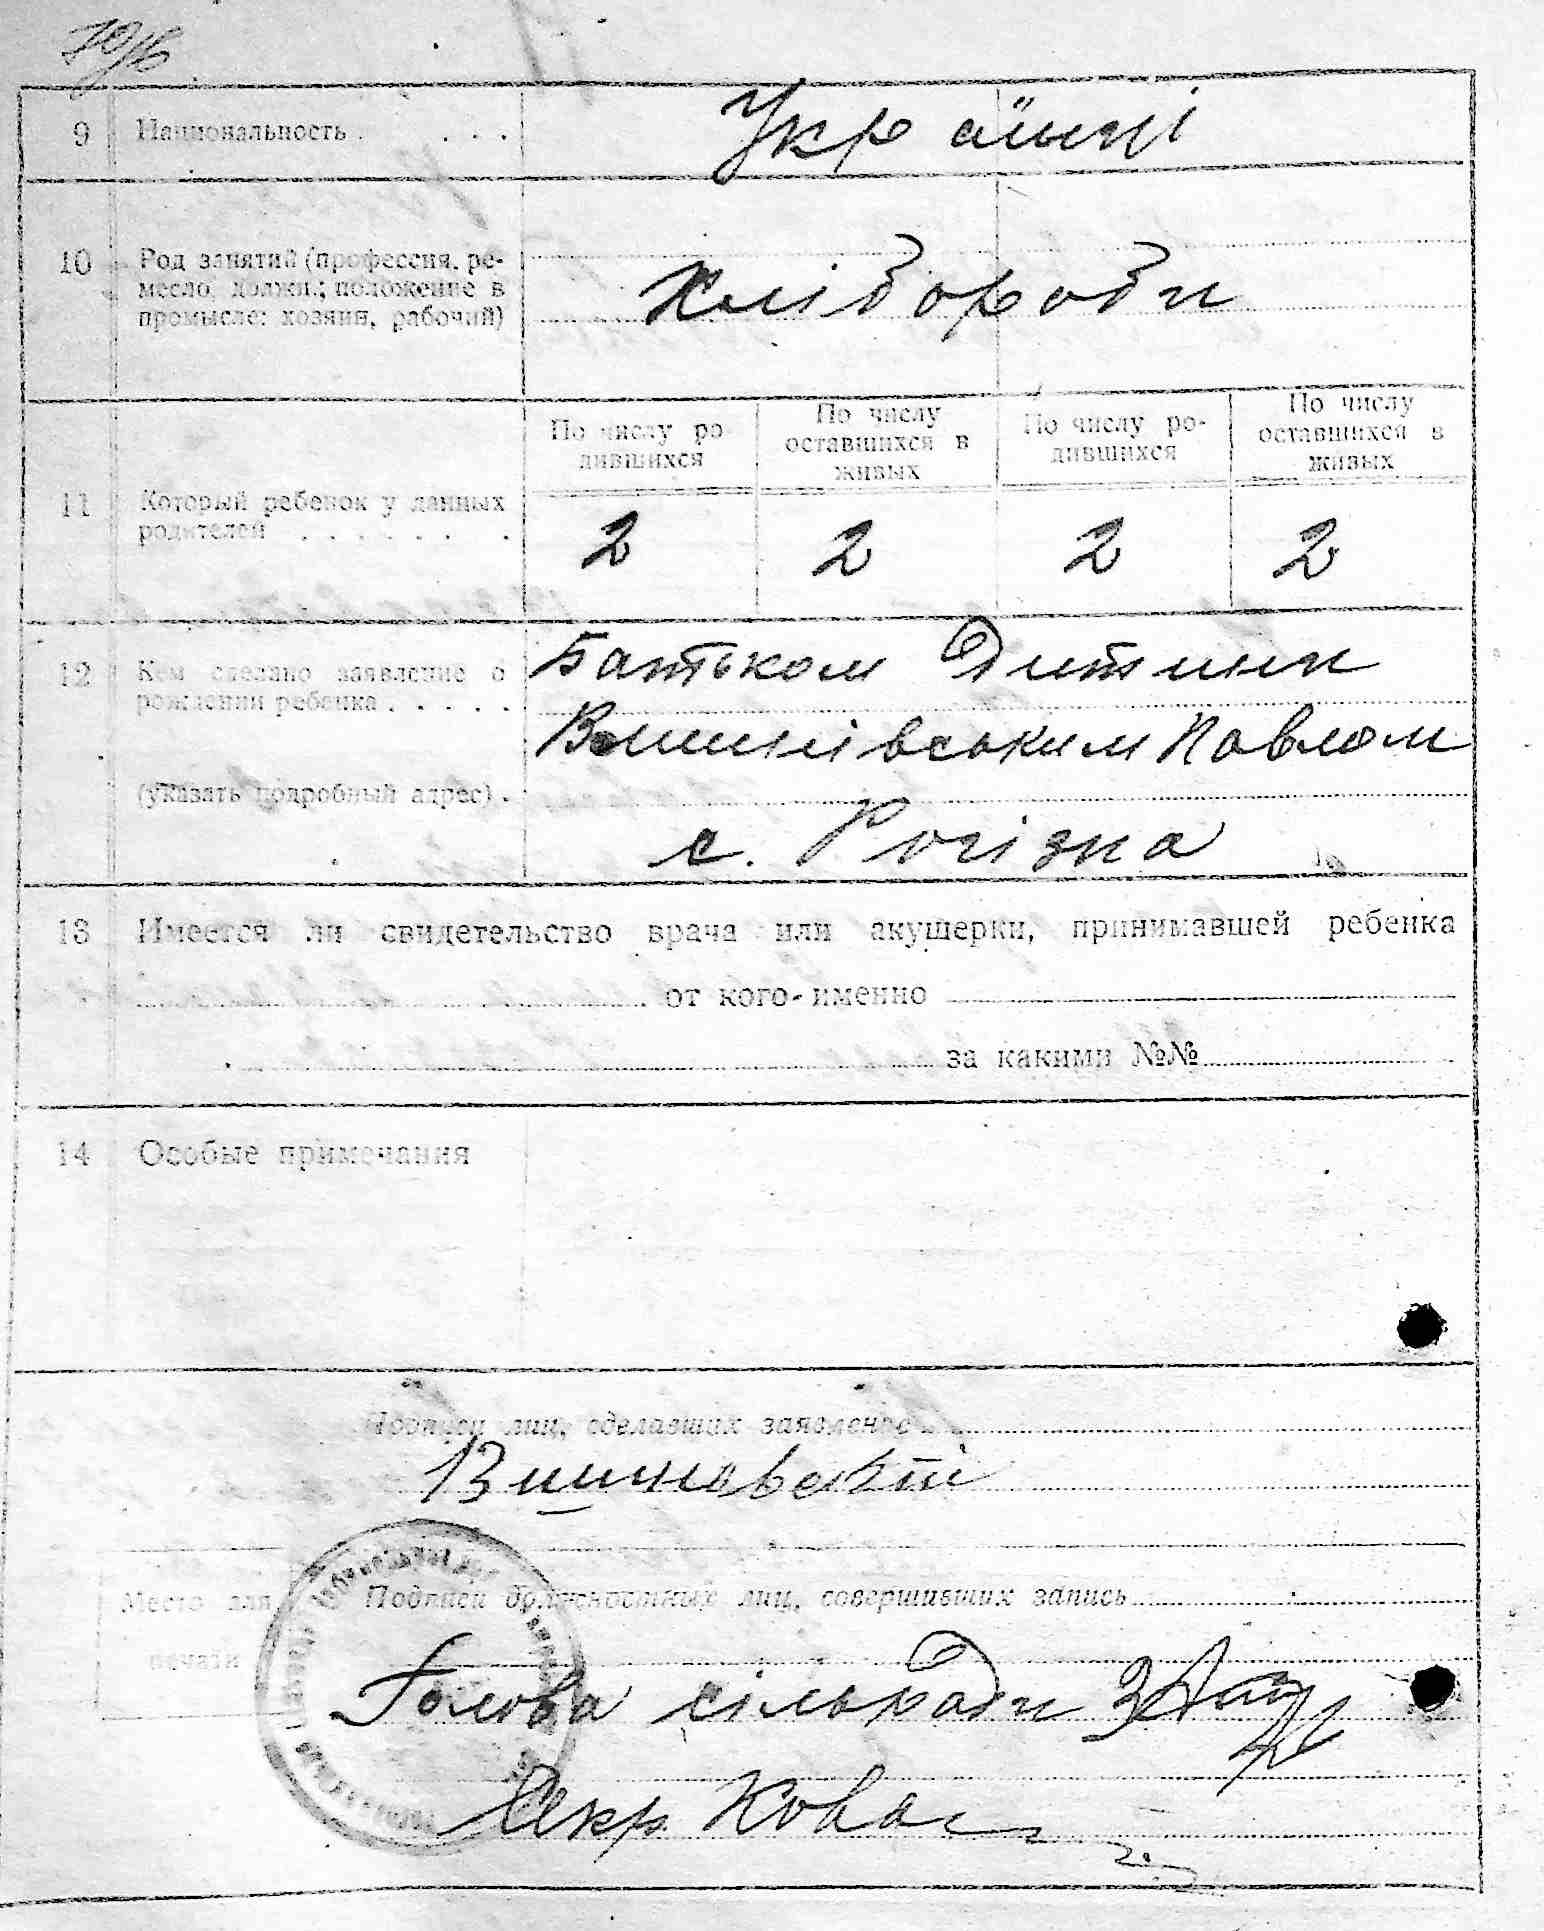 9 Национальность . . . .
Українці
10 Род занятий (профессия, ре-
месло, должн.; положение в
промысле: хозяин, рабочий)
Хлібороби
11 Который ребенок у данных
родителей . . . . . . .
По числу ро-
дившихся
По числу
оставшихся в
живых
По числу ро-
дившихся
По числу
оставшихся в
живых
2 2 2 2
12 Кем сделано заявление о
рождении ребенка . . . . .
(указать подробный адрес) .
Батьком Дитини
Вишнівським Павлом
с. Рогізна
13 Имеется ли свидетельство врача или акушерки, принимавшей ребенка
от кого-именно
за какими №№
14 Особые примечания
Подписи лиц, сделавших заявление
Вишнівскій
Место для
печати
Подписи должностных лиц, совершивших запись
Голова сільради
Секр Ковал